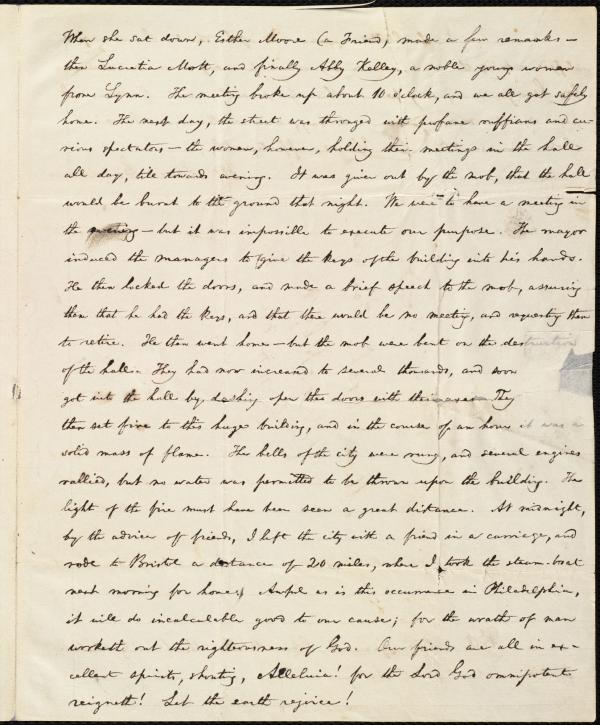 When she sat down, Esther Moore (a Friend) made a few remarks—
then Lucretia Mott, and finally Abby Kelley, a noble young woman
from Lynn. The meeting broke up about 10 o'clock, and we all got safely
home. The next day, the street was thronged with profane ruffians and cu-
rious spectators—the women, however, holding their meetings in the hall
all day, till towards evening. It was given out by the mob, that the hall
would be burnt to the ground that night. We were to have a meeting in
the evening—but it was impossible to execute our purpose. The mayor
induced the managers to give the keys of the building into his hands.
He then locked the doors, and made a brief speech to the mob, assuring
them that he had the keys, and that there would be no meeting, and requesting them
to retire. He then went home—but the mob were bent on the destruction
of the hall. They had now increased to several thousands, and soon
got into the hall by dashing open the doors with their axes. They
then set fire to this huge building, and in the course of an hour it was a
solid mass of flame. The bells of the city were rung, and several engines
rallied, but no water was permitted to be thrown upon the building. The
light of the fire must have been seen a great distance. At midnight,
by the advice of friends, I left the city with a friend in a carriage, and
rode to Bristol a distance of 20 miles, where I took the steam-boat
next morning for home. Awful as is this occurrence in Philadelphia,
it will do incalculable good to our cause; for the wrath of man
worketh out the righteousness of God. Our friends are all in ex-
cellent spirits, shouting, Alleluia! for the Lord God omnipotent
reigneth! Let the earth rejoice!